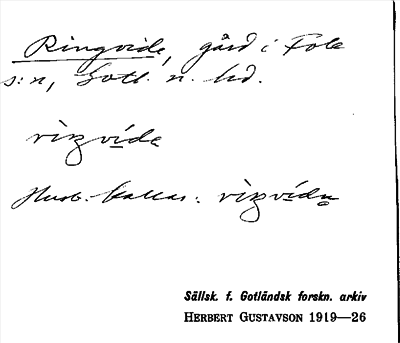 Ringvide, gård i Fole
s:n, Gotl. n. hd.
riŋvidẹ
Husb. kallas: riŋvidu
Sällsk. f. Gotländsk forskn. arkiv
HERBERT GUSTAVSON 1919—26